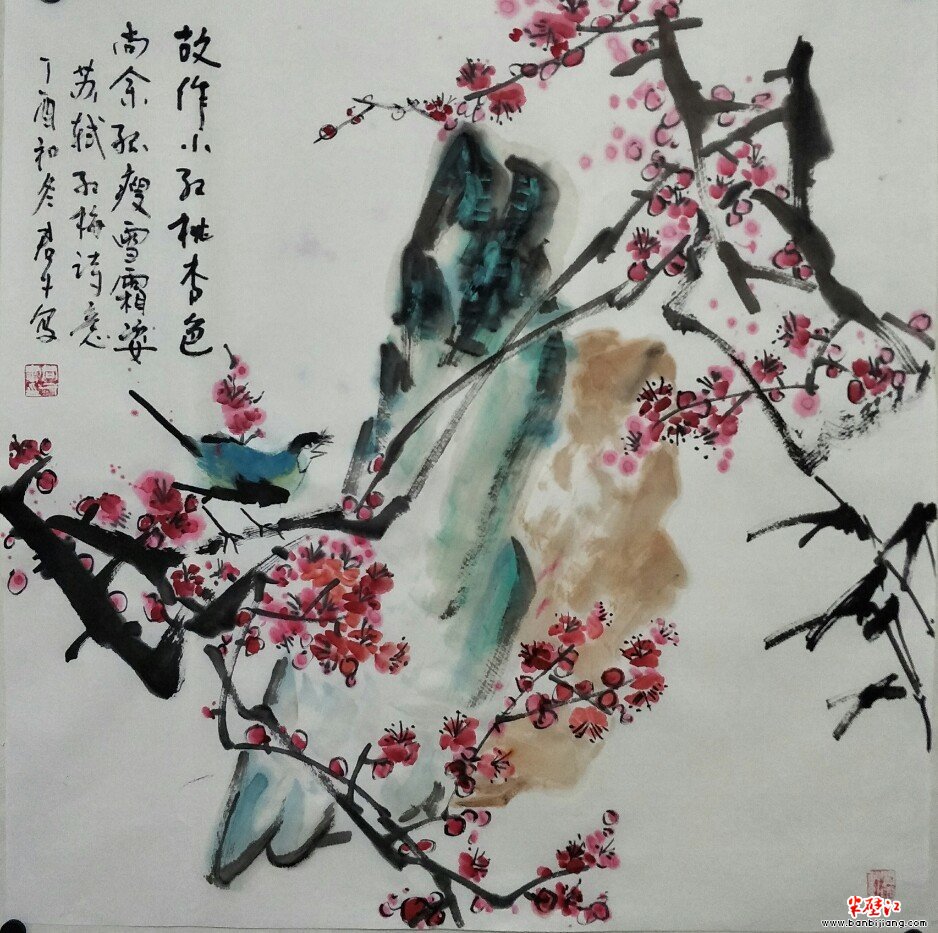 故作小红桃杏色
尚余孤瘦雪霜姿
苏轼红梅诗意
丁酉初冬春生写
半壁江
www.banbijiang.com